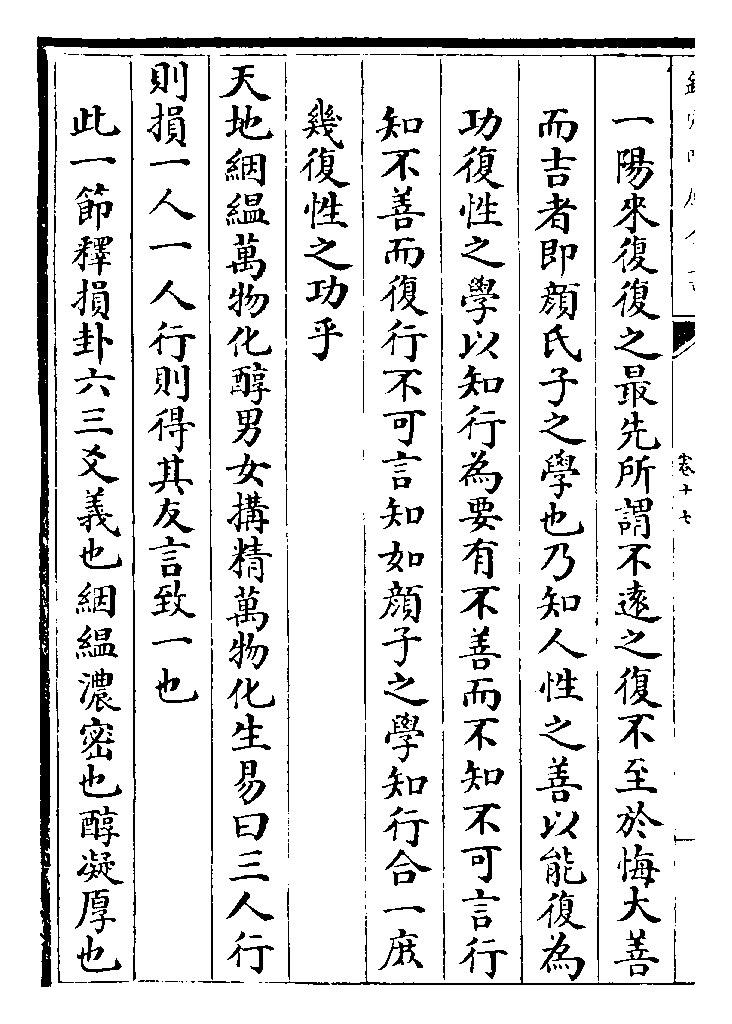 卷十七
一陽來復復之最先所謂不遠之復不至於悔大善
而吉者即顔氏子之學也乃知人性之善以能復為
功復性之學以知行為要有不善而不知不可言行
知不善而復行不可言知如顔子之學知行合一庶
幾復性之功乎
天地絪縕萬物化醇男女搆精萬物化生易曰三人行
則損一人一人行則得其友言致一也
此一節釋損卦六三爻義也絪縕濃密也醇凝厚也